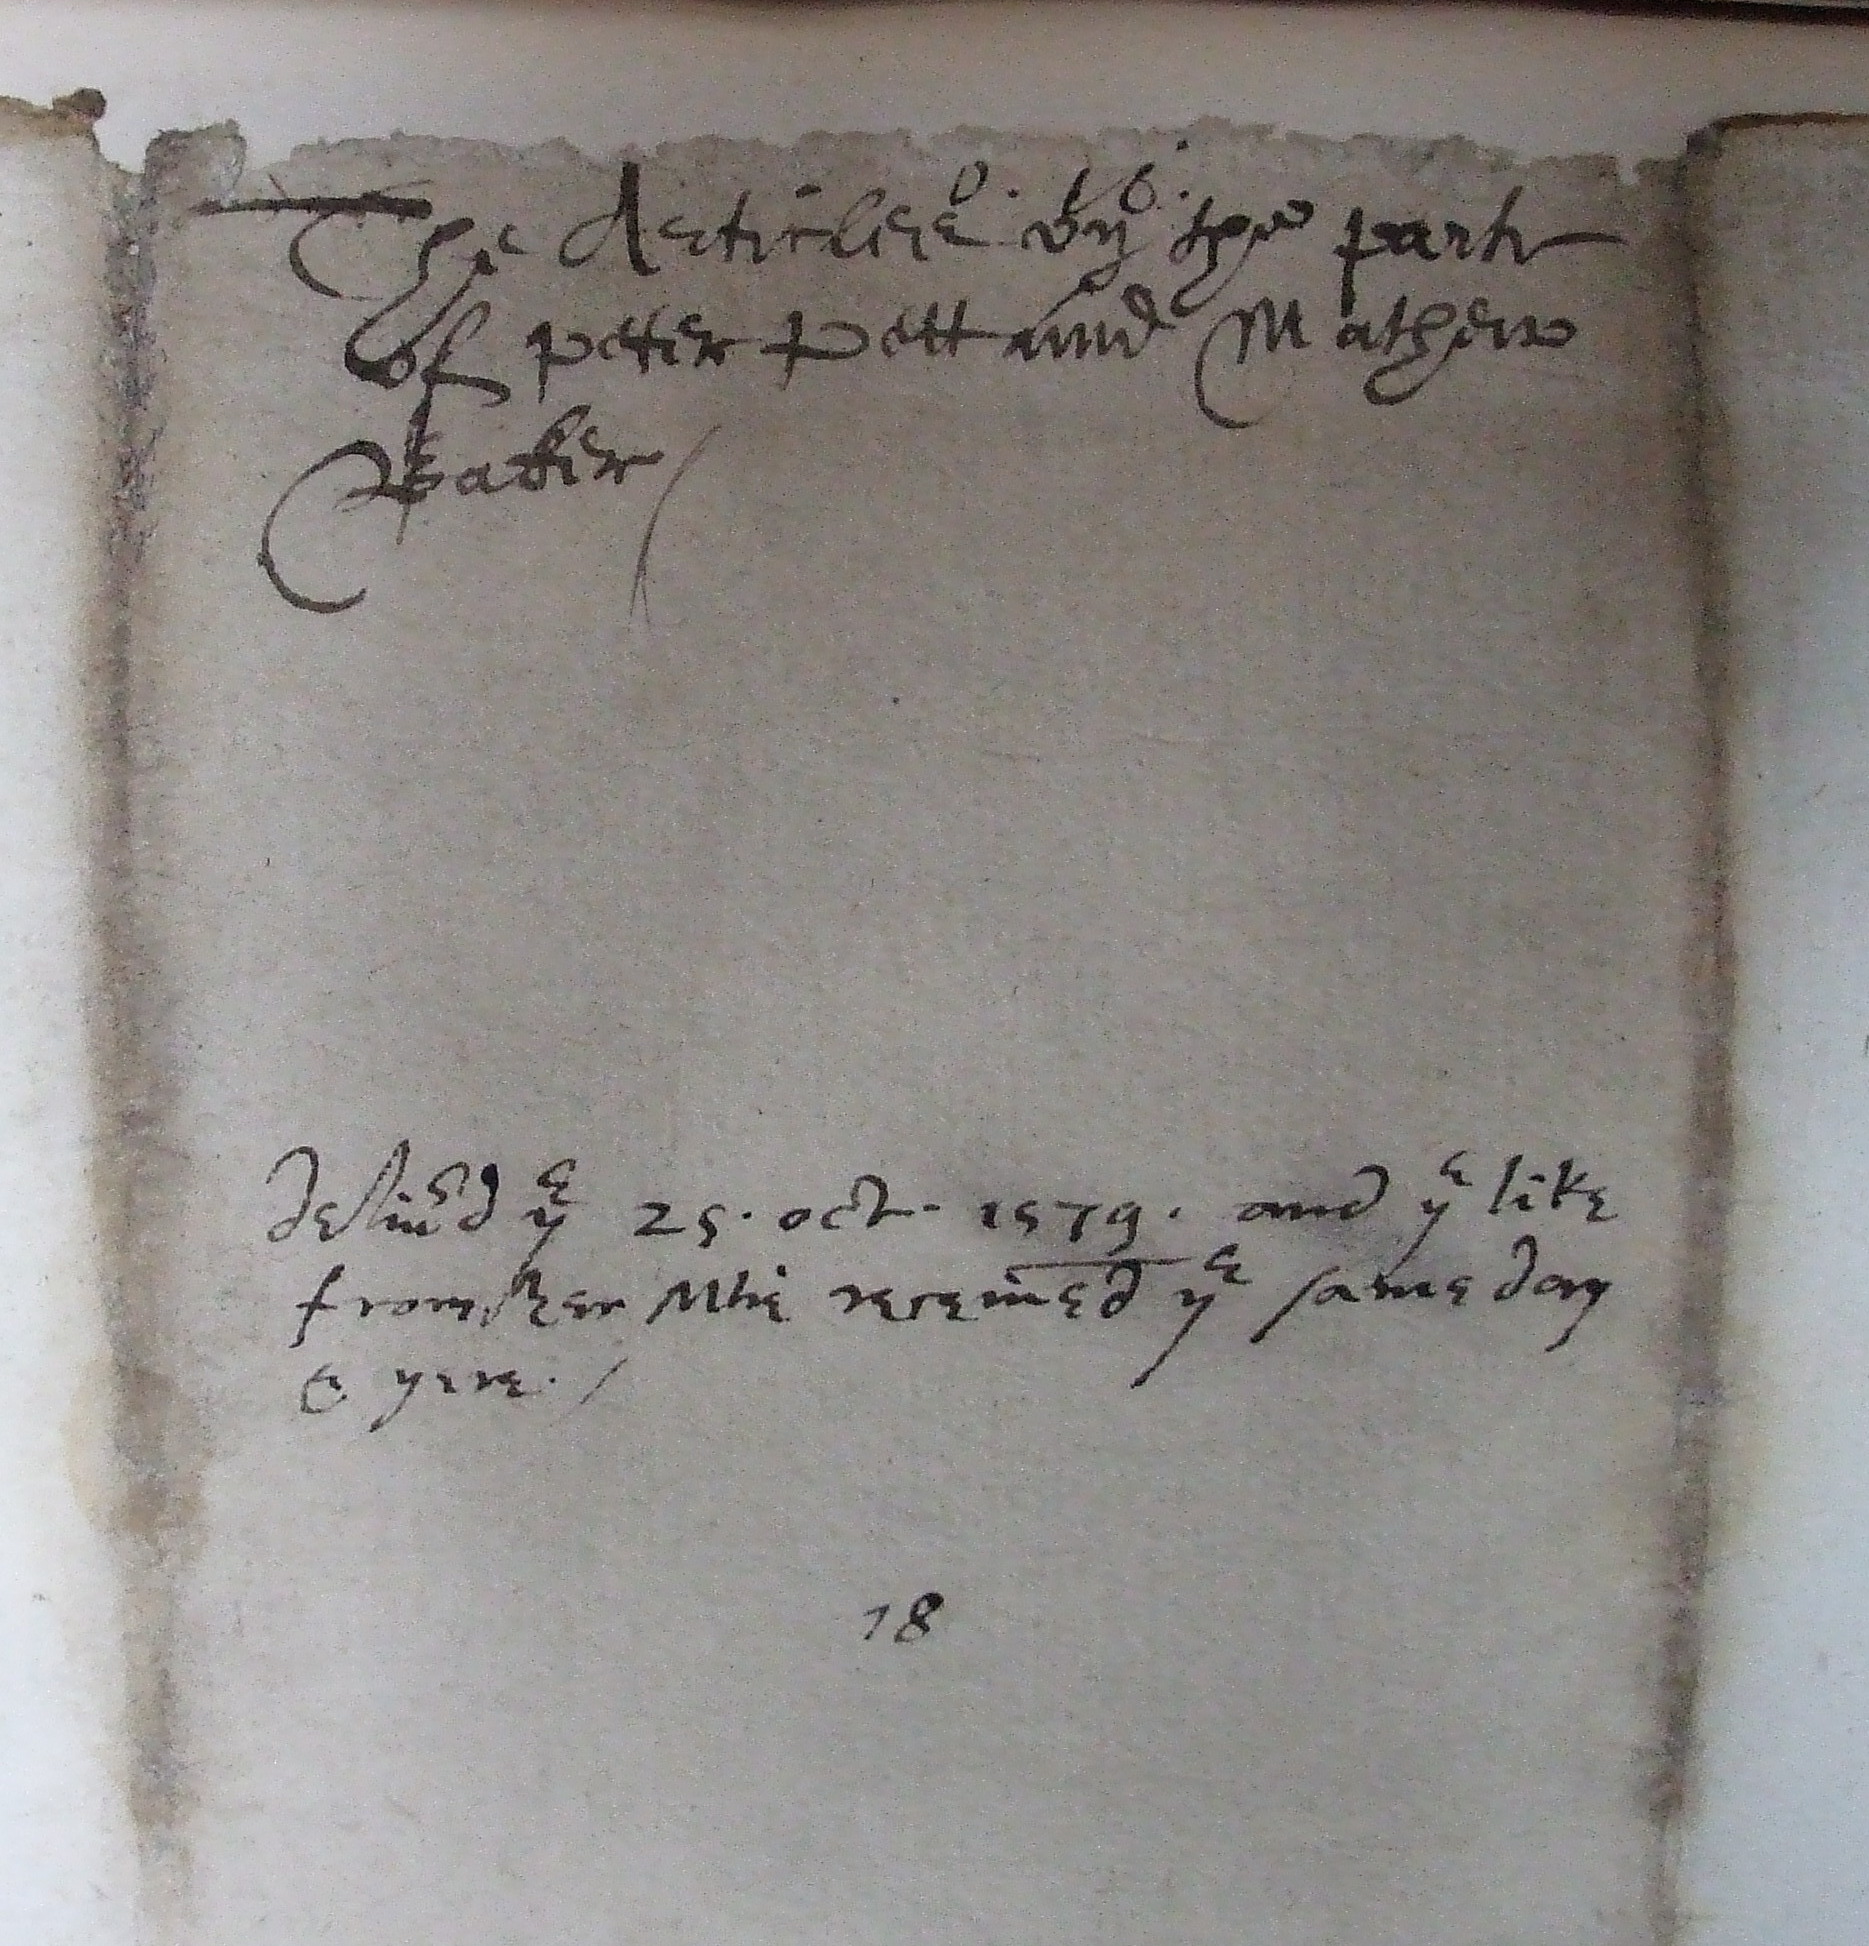 The Articles by the part
of peter Pett and Mathew
Baker /
deliu'd yͤ 25. oct. 1579. and yͤ like
from her Mtie receiued yͤ same day
& yere. /
18